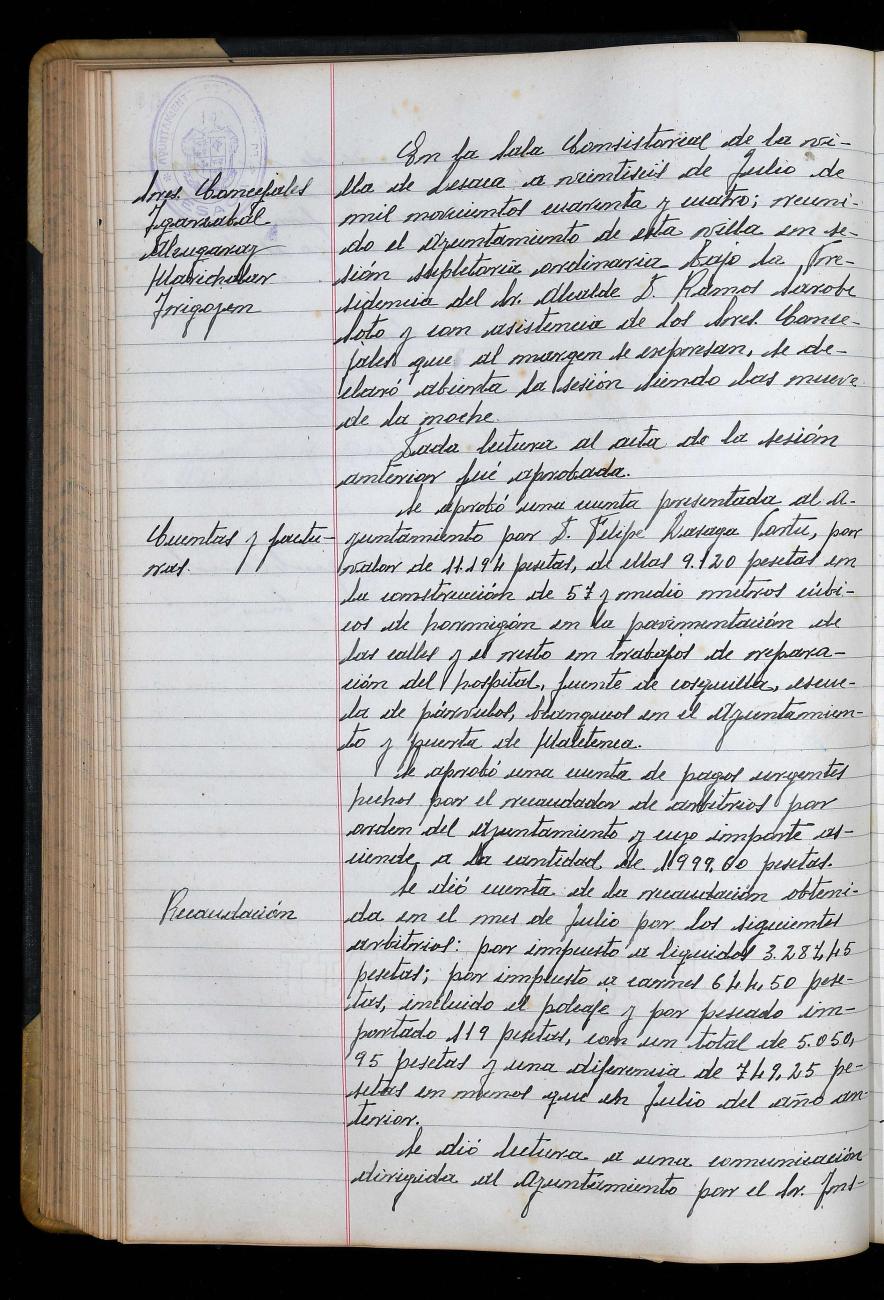 AYUNTAMIENTO
LESACA
Sres. Concejales
Igarzabal
Alzugaray
Marichalar
Irigoyen
En la Sala Consistorial de la vi-
lla de Lesaca a veintiseis de Julio de
mil novecientos cuarenta y cuatro; reuni-
do el Ayuntamiento de esta villa en se-
sión supletoria ordinaria bajo la Pre-
sidencia del Sr. Alcalde D. Ramos Sarobe
Soto y con asistencia de los Sres. Conce-
jales que al margen se expresan, se de-
claró abierta la sesión siendo las nueve
de la noche.
Dada lectura al acta de la sesión
anterior fué aprobada.
Cuentas y factu-
ras.
Se aprobó una cuenta presentada al A-
yuntamiento por D. Felipe Lasaga Portu, por
valor de 11.194 pesetas, de ellas 9.120 pesetas en
la construcción de 57 y medio metros cúbi-
cos de hormigón en la pavimentación de
las calles y el resto en trabajos de repara-
ción del hospital, fuente de cosquilla, escue-
la de párvulos, blanqueos en el Ayuntamien-
to y puerta de Matetenea.
Se aprobó una cuenta de pagos urgentes
hechos por el recaudador de arbitrios por
orden del Ayuntamiento y cuyo importe as-
ciende a la cantidad de 1999,60 pesetas.
Recaudación
Se dió cuenta de la recaudación obteni-
da en el mes de Julio por los siguientes
arbitrios: por impuesto a liquidos 3.287,45
pesetas; por impuesto a carnes 644,50 pese-
tas, incluido el poleaje y por pescado im-
portado 119 pesetas, con un total de 5.050,
95 pesetas y una diferencia de 749,25 pe-
setas en menos que en Julio del año an-
terior.
Se dió lectura a una comunicación
dirigida al Ayuntamiento por el Sr. Ins-